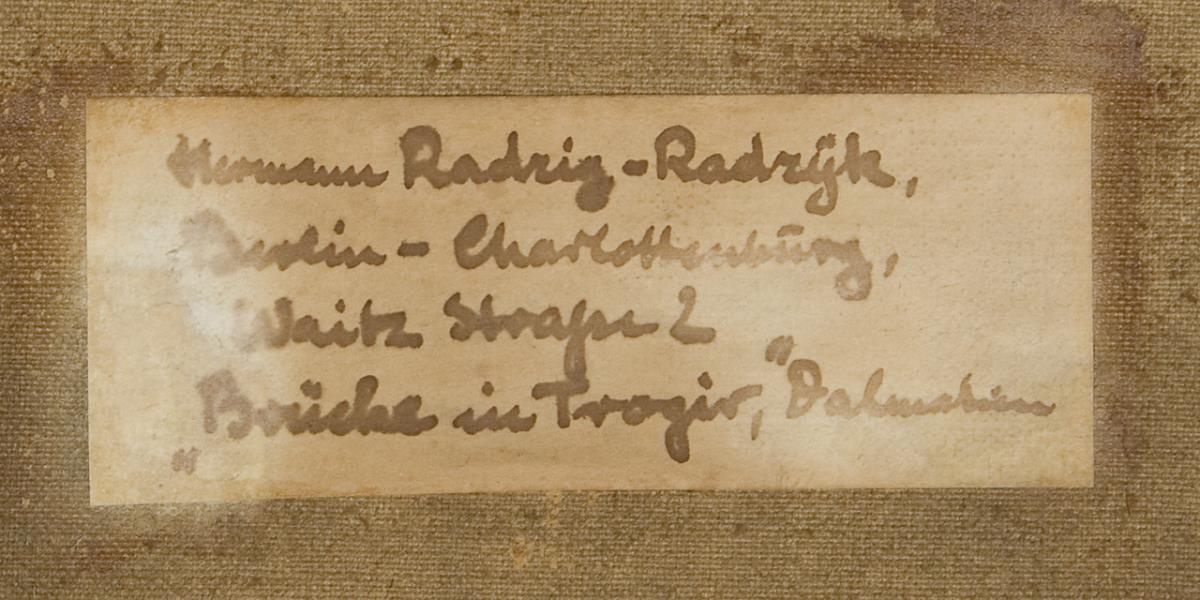 Hermann Radzig-Radzÿk,
Berlin - Charlottenbūrg,
Waitz Straße 2
„Brücke in Trogir,“ Dalmatien